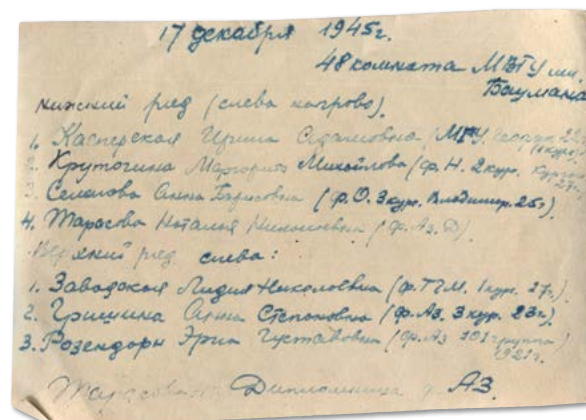 17 декабря 1945г.
48 комната МВТУ им.
Баумана
нижний ряд (слева направо).
1. Касперская Ирина Адамовна (МГУ,
2. Крутогина Маргарита Михайлова (ф. Н. 2 кур.
3. Семенова Анна Борисовна (ф. О. 3 кур. Владимир. 25г).
4. Тарасова Наталья Николаевна (ф. Аз. Д)
Верхний ряд слева:
1. Завадская Лидия Николаевна (ф. ТГМ. 1 кур. 27г.)
2. Гришина Анна Степановна (ф. Аз. 3 кур. 23г.)
3. Розендорн Эриа Густавовна (ф. Аз 101 группа)
1921г.
Тарасова Дипломница ф. АЗ.